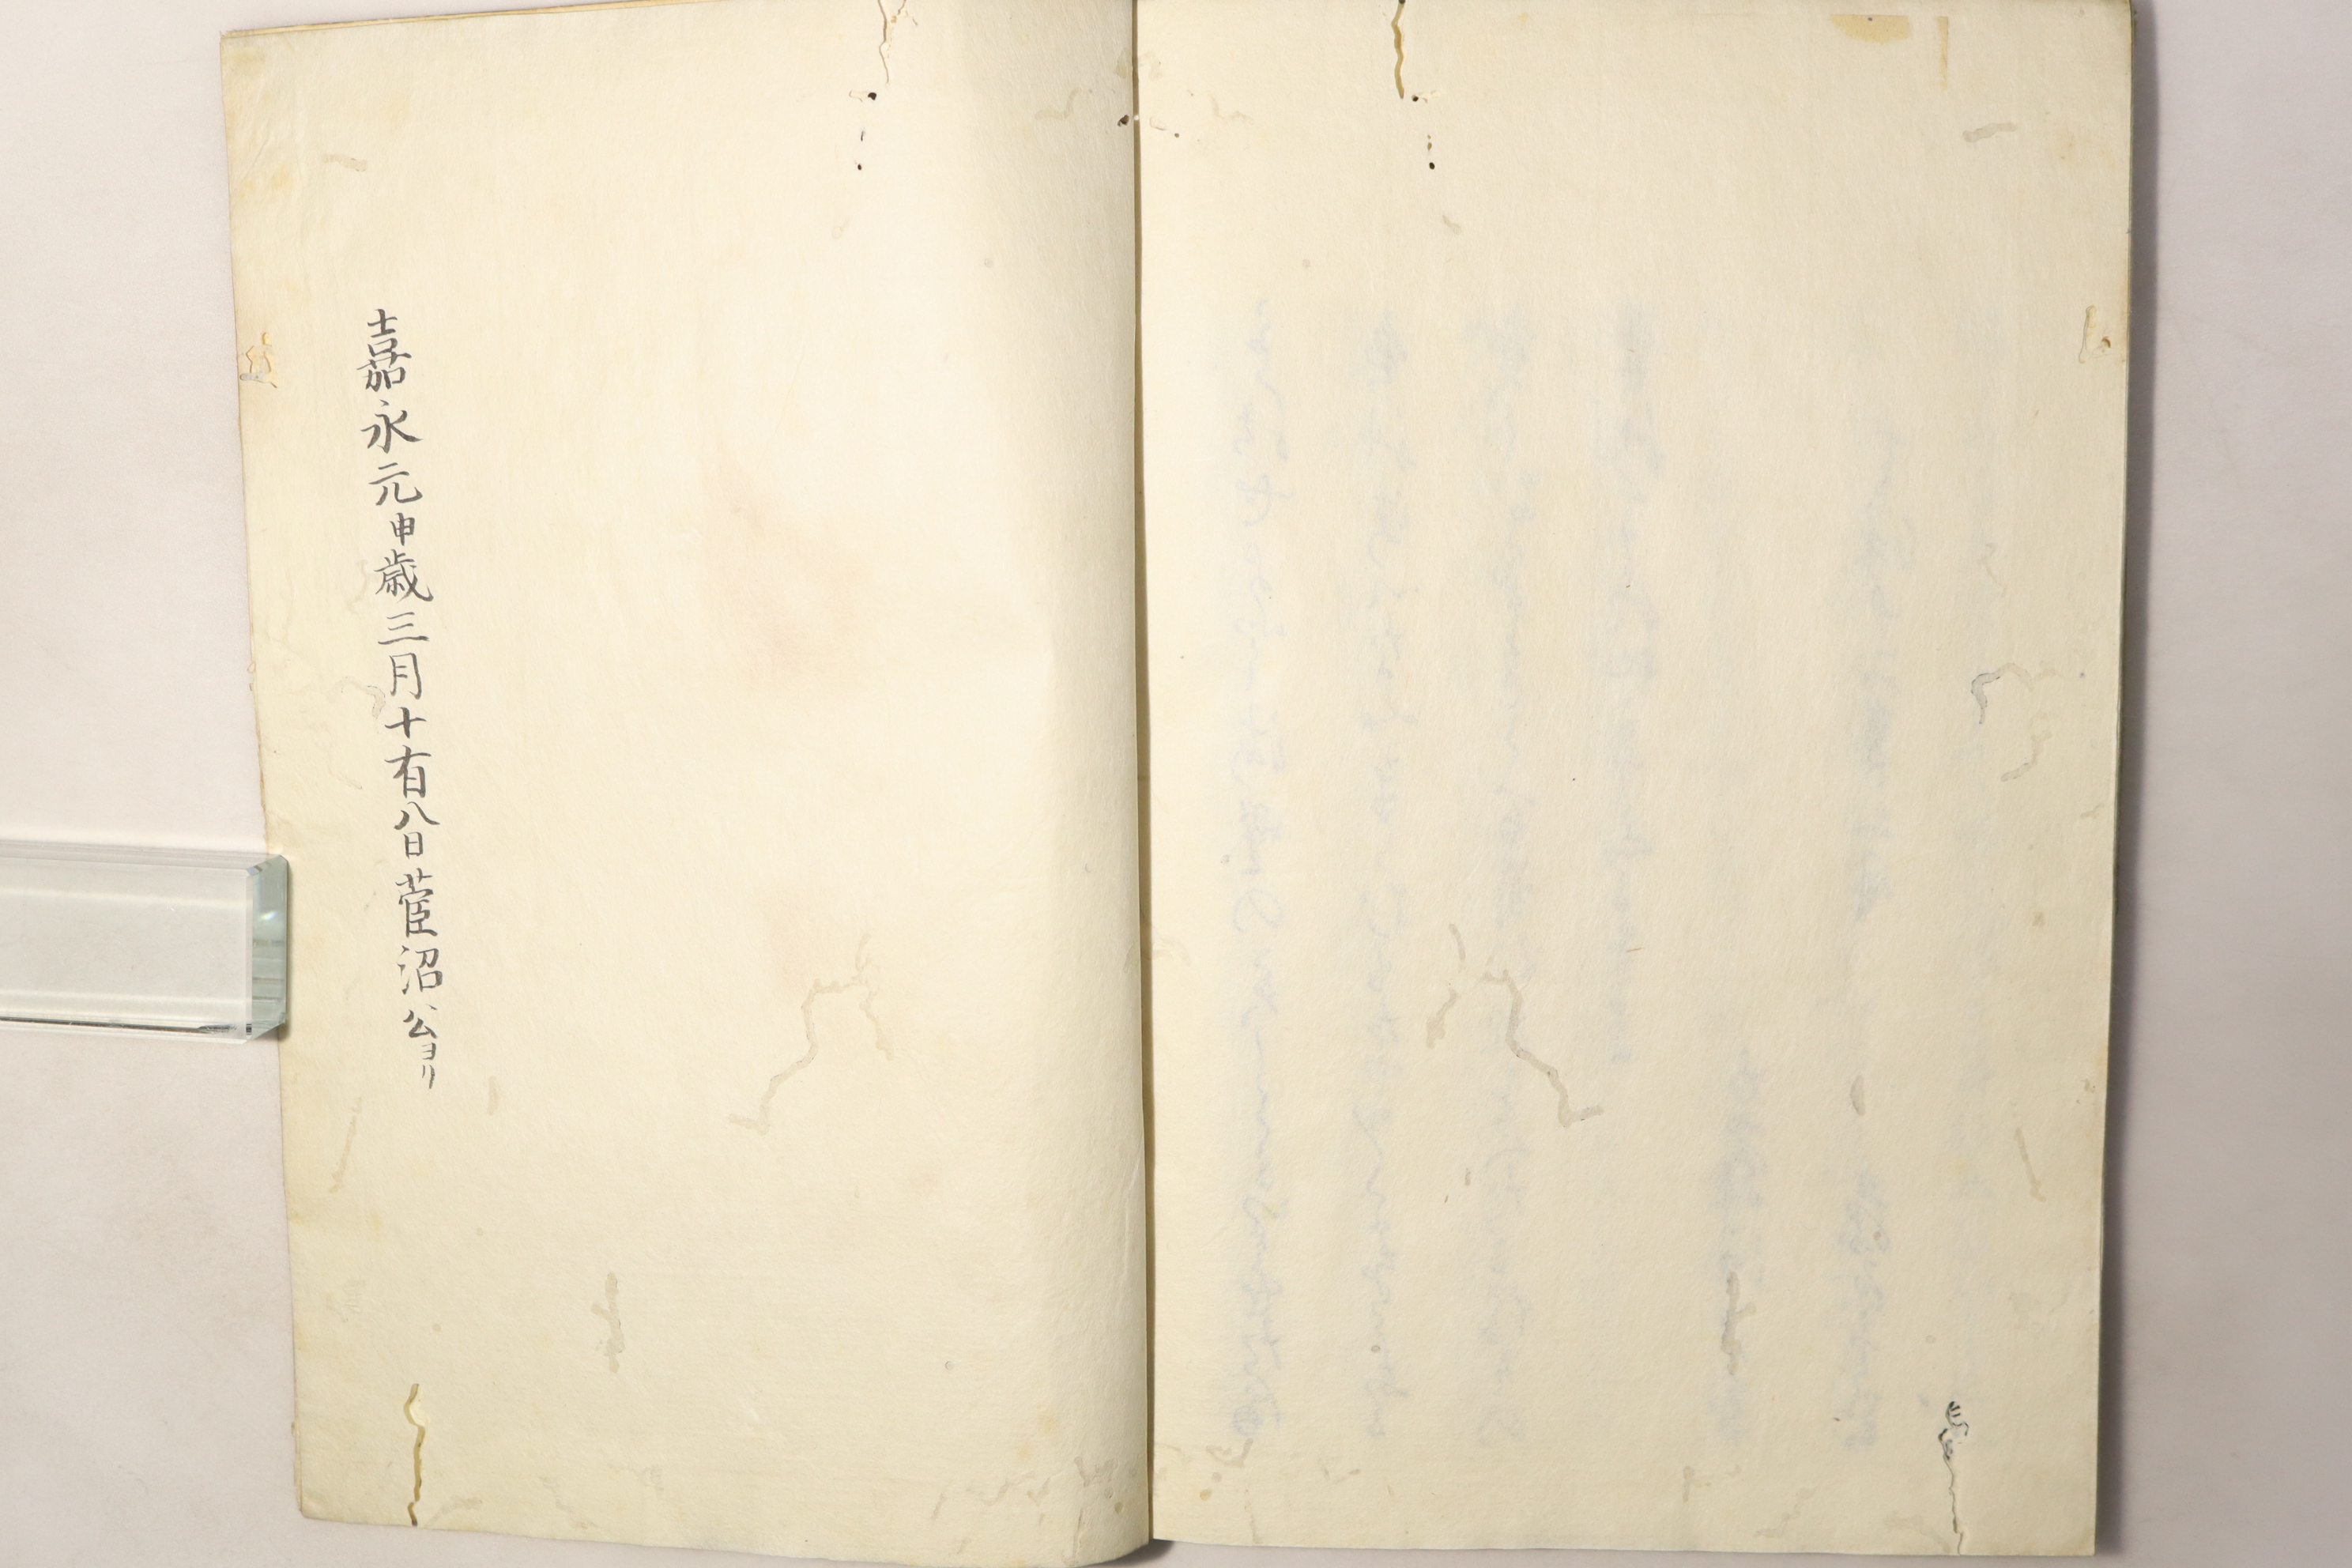 嘉永元申歳三月十有八日菅沼公ヨリ